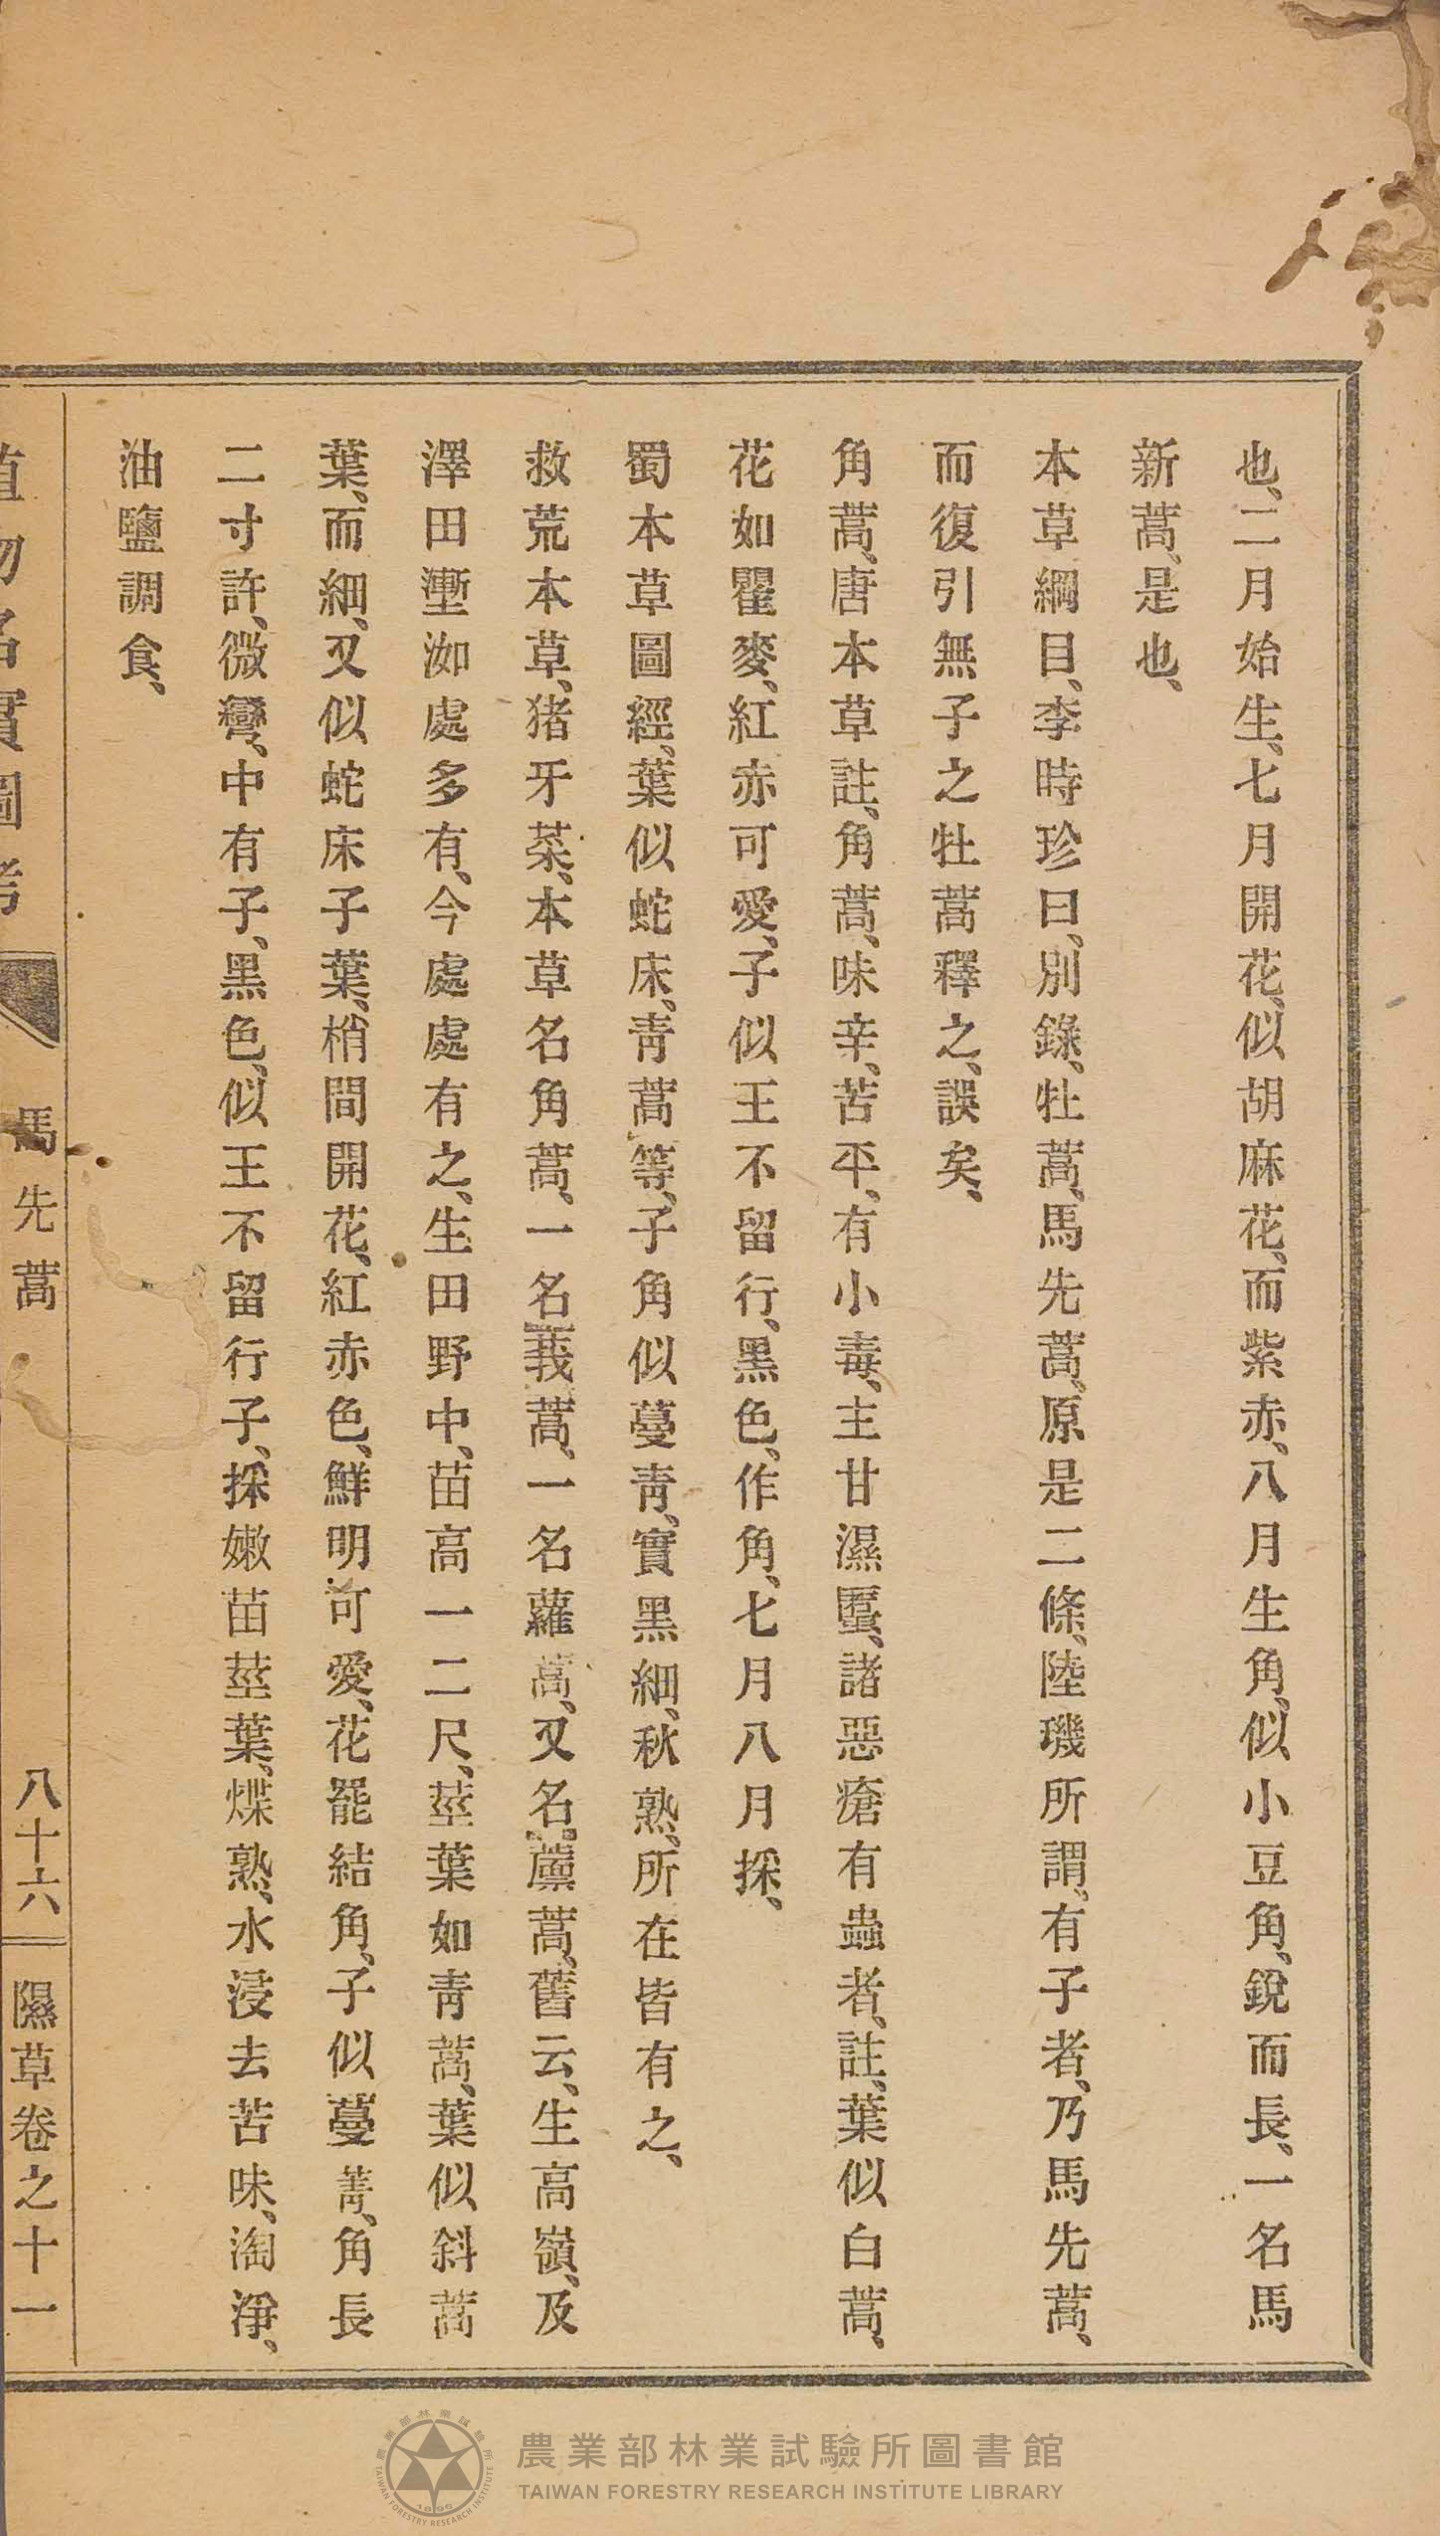 也、二月始生、七月開花、似胡麻花、而紫赤、八月生角、似小豆角、銳而長、一名馬
新蒿、是也、
本草綱目、李時珍曰、別錄、牡蒿、馬先蒿、原是二條、陸璣所謂、有子者、乃馬先蒿、
而復引無子之牡蒿釋之、誤矣、
角蒿、唐本草註、角蒿、味辛、苦平、有小毒、主甘濕䘌、諸惡瘡有蟲者、註、葉似白蒿、
花如瞿麥、紅赤可愛、子似王不留行、黑色、作角、七月八月採、
蜀本草圖經、葉似蛇床、靑蒿等、子角似蔓靑、實黑細、秋熟、所在皆有之、
救荒本草、猪牙菜、本草名角蒿、一名莪蒿、一名蘿蒿、又名藁蒿、舊云、生高嶺、及
澤田壍洳處多有、今處處有之、生田野中、苗高一二尺、莖葉如靑蒿、葉似斜蒿
葉、而細、又似蛇床子葉、梢間開花、紅赤色、鮮明可愛、花罷結角、子似蔓菁、角長
二寸許、微彎、中有子、黑色、似王不留行子、採嫩苗莖葉、煠熟、水浸去苦味、淘淨、
油鹽調食、
植物名實圖考 馬先蒿 八十六 隰草卷之十一
農業部林業試驗所圖書館
TAIWAN FORESTRY RESEARCH INSTITUTE LIBRARY
農業部林業試驗所
TAIWAN FORESTRY RESEARCH INSTITUTE
1896